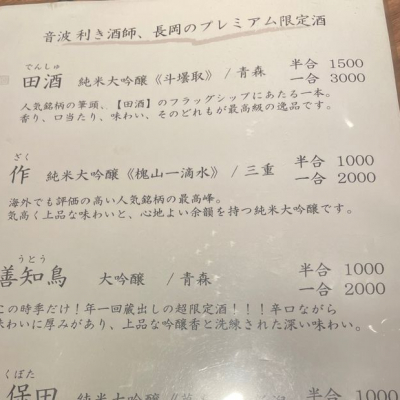 音波 利き酒師、長岡のプレミアム限定酒
でんしゅ
田酒 純米大吟醸《斗壜取》 / 青森 半合 1500
一合 3000
人気銘柄の筆頭、【田酒】のフラッグシップにあたる一本。
香り、口当たり、味わい、そのどれもが最高級の逸品です。
ざく
作 純米大吟醸《槐山一滴水》 / 三重 半合 1000
一合 2000
海外でも評価の高い人気銘柄の最高峰。
気高く上品な味わいと、心地よい余韻を持つ純米大吟醸です。
うとう
善知鳥 大吟醸 / 青森 半合 1000
一合 2000
この時季だけ!年一回蔵出しの超限定酒!!!辛口ながら
味わいに厚みがあり、上品な吟醸香と洗練された深い味わい。
くぼた
保田 純米大吟醸 半合 1000